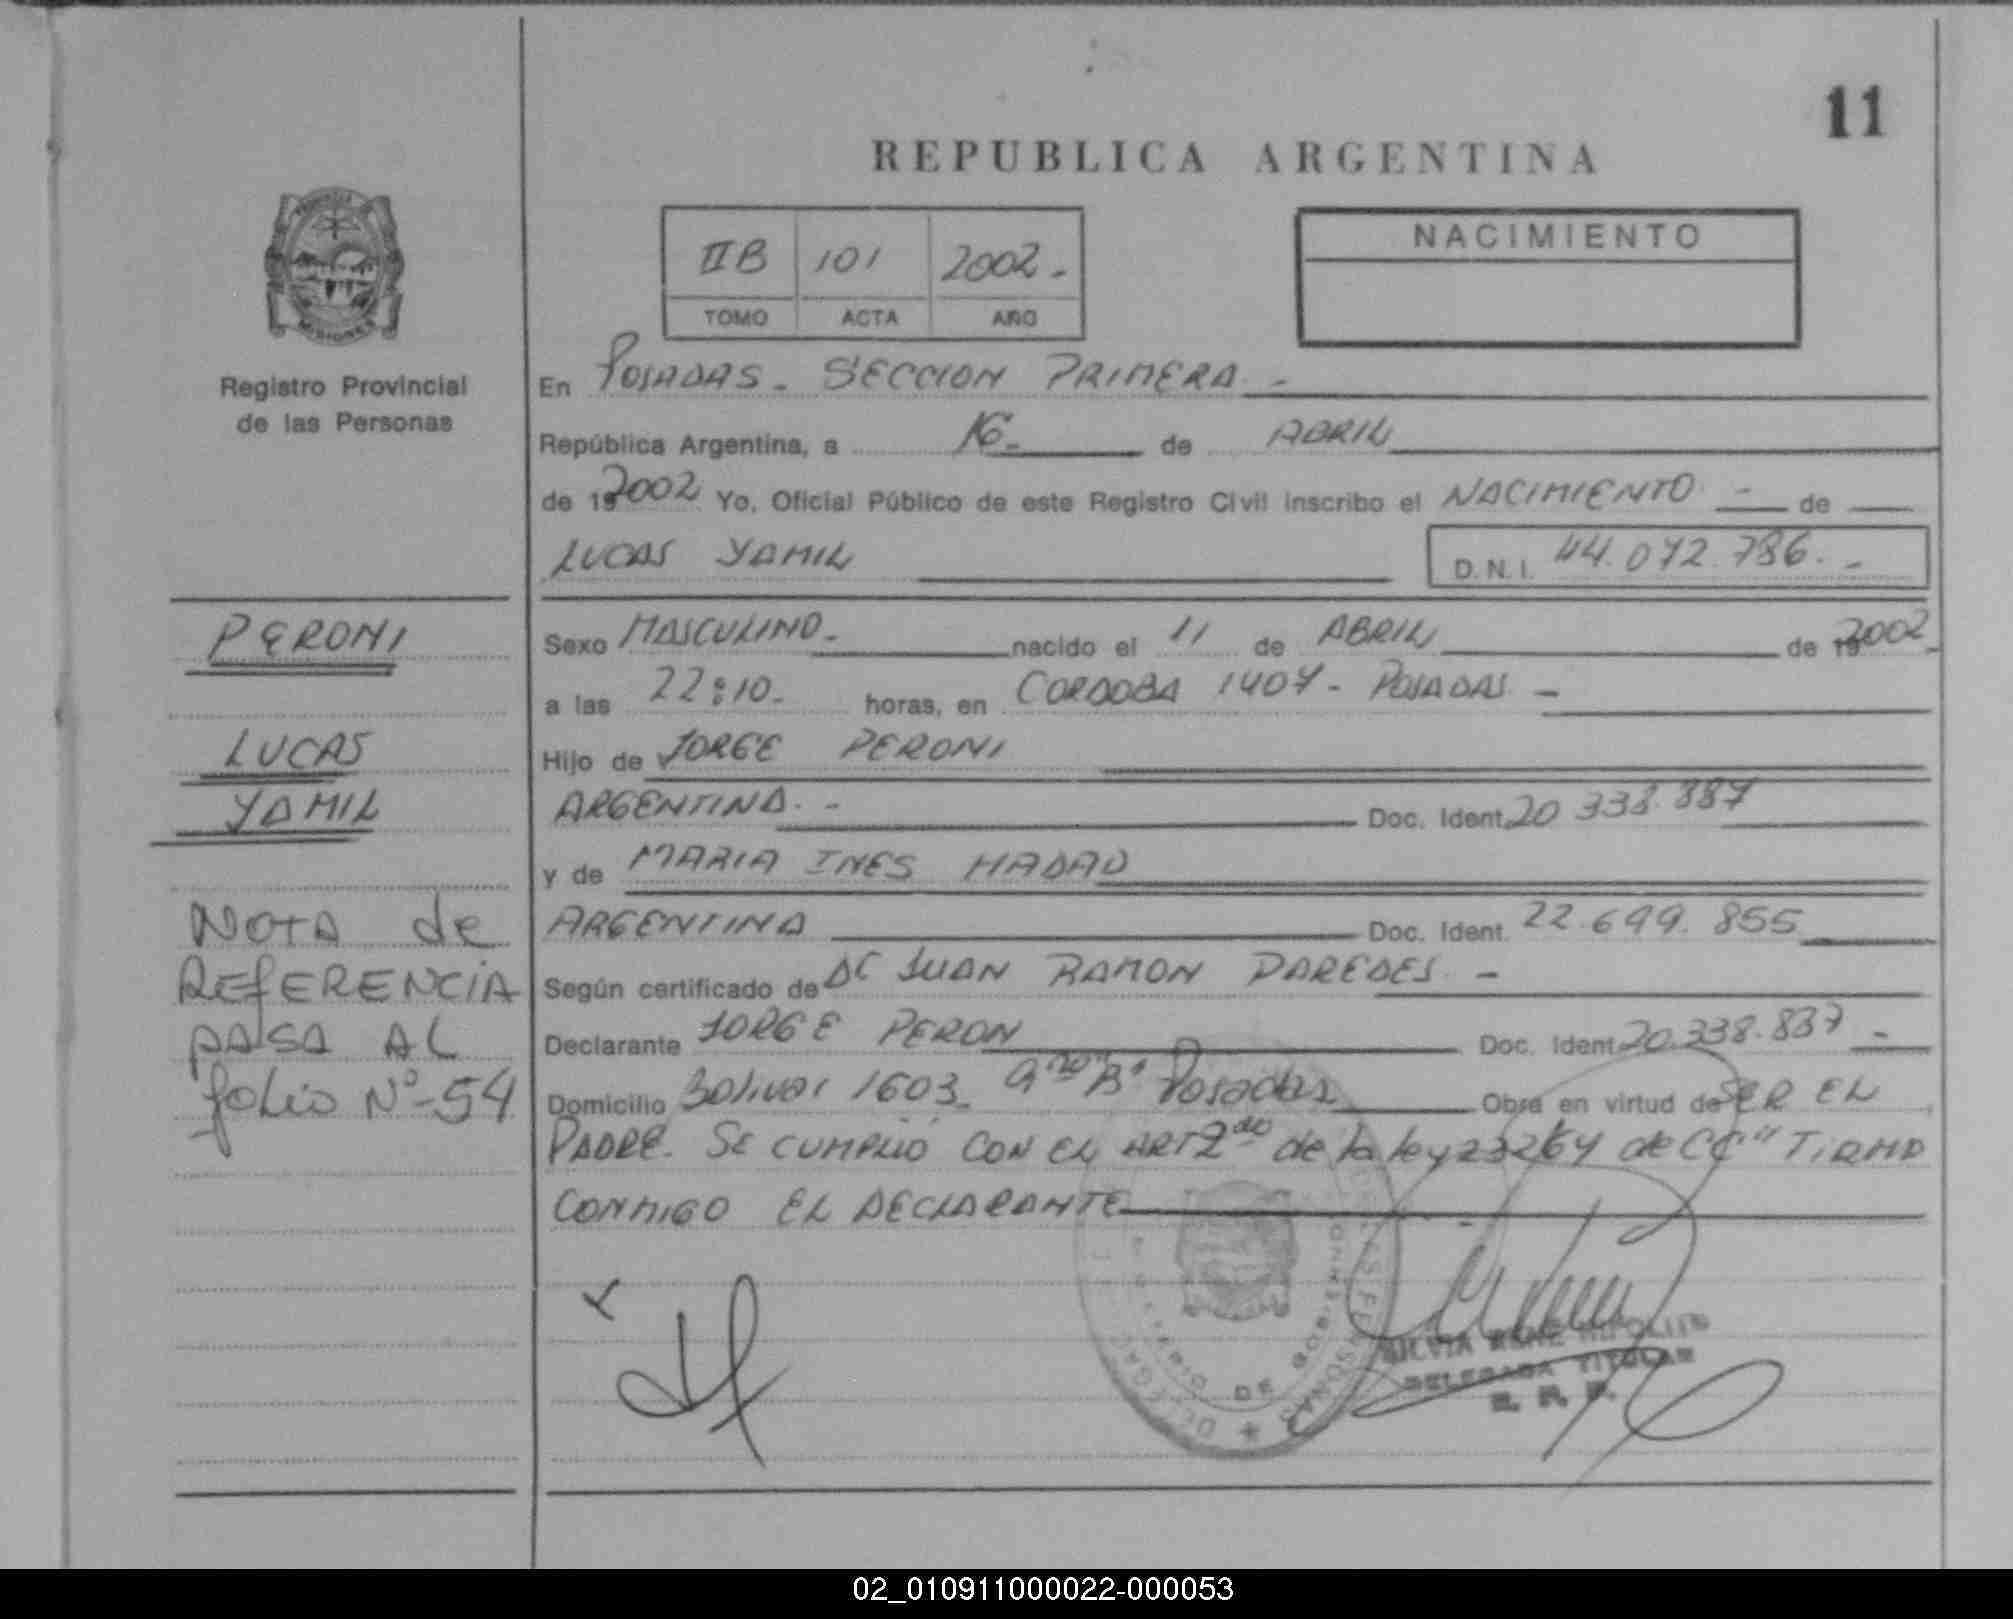 11
REPUBLICA ARGENTINA
IIB 101 2002.-
TOMO ACTA AÑO
NACIMIENTO
MISIONES
Registro Provincial
de las Personas
En POSADAS - SECCION PRIMERA -
República Argentina, a 16 - de ABRIL
de 19 2002 Yo, Oficial Público de este Registro Civil inscribo el NACIMIENTO - de
LUCAS YAMIL D.N.I. 44.072.786.-
PERONI
LUCAS
YAMIL
NOTA de
REFERENCIA
PASA AL
folio Nº-54
Sexo MASCULINO - nacido el 11 de ABRIL de 19 2002-
a las 22:10- horas, en CORDOBA 1407 - POSADAS -
Hijo de JORGE PERONI
ARGENTINA.- Doc. Ident. 20 338.887
y de MARIA INES HADAD
ARGENTINA Doc. Ident. 22.699.855
Según certificado de DC JUAN RAMON PAREDES -
Declarante JORGE PERON Doc. Ident. 20.338.837 -
Domicilio Bolivar 1603 - Posadas Obra en virtud de SER EL
PADRE. SE CUMPLIO CON EL ART 2do de la ley 23264 de CC" FIRMA
CONMIGO EL DECLARANTE
DELEGADA TITULAR
R. P. P.
02_010911000022-000053